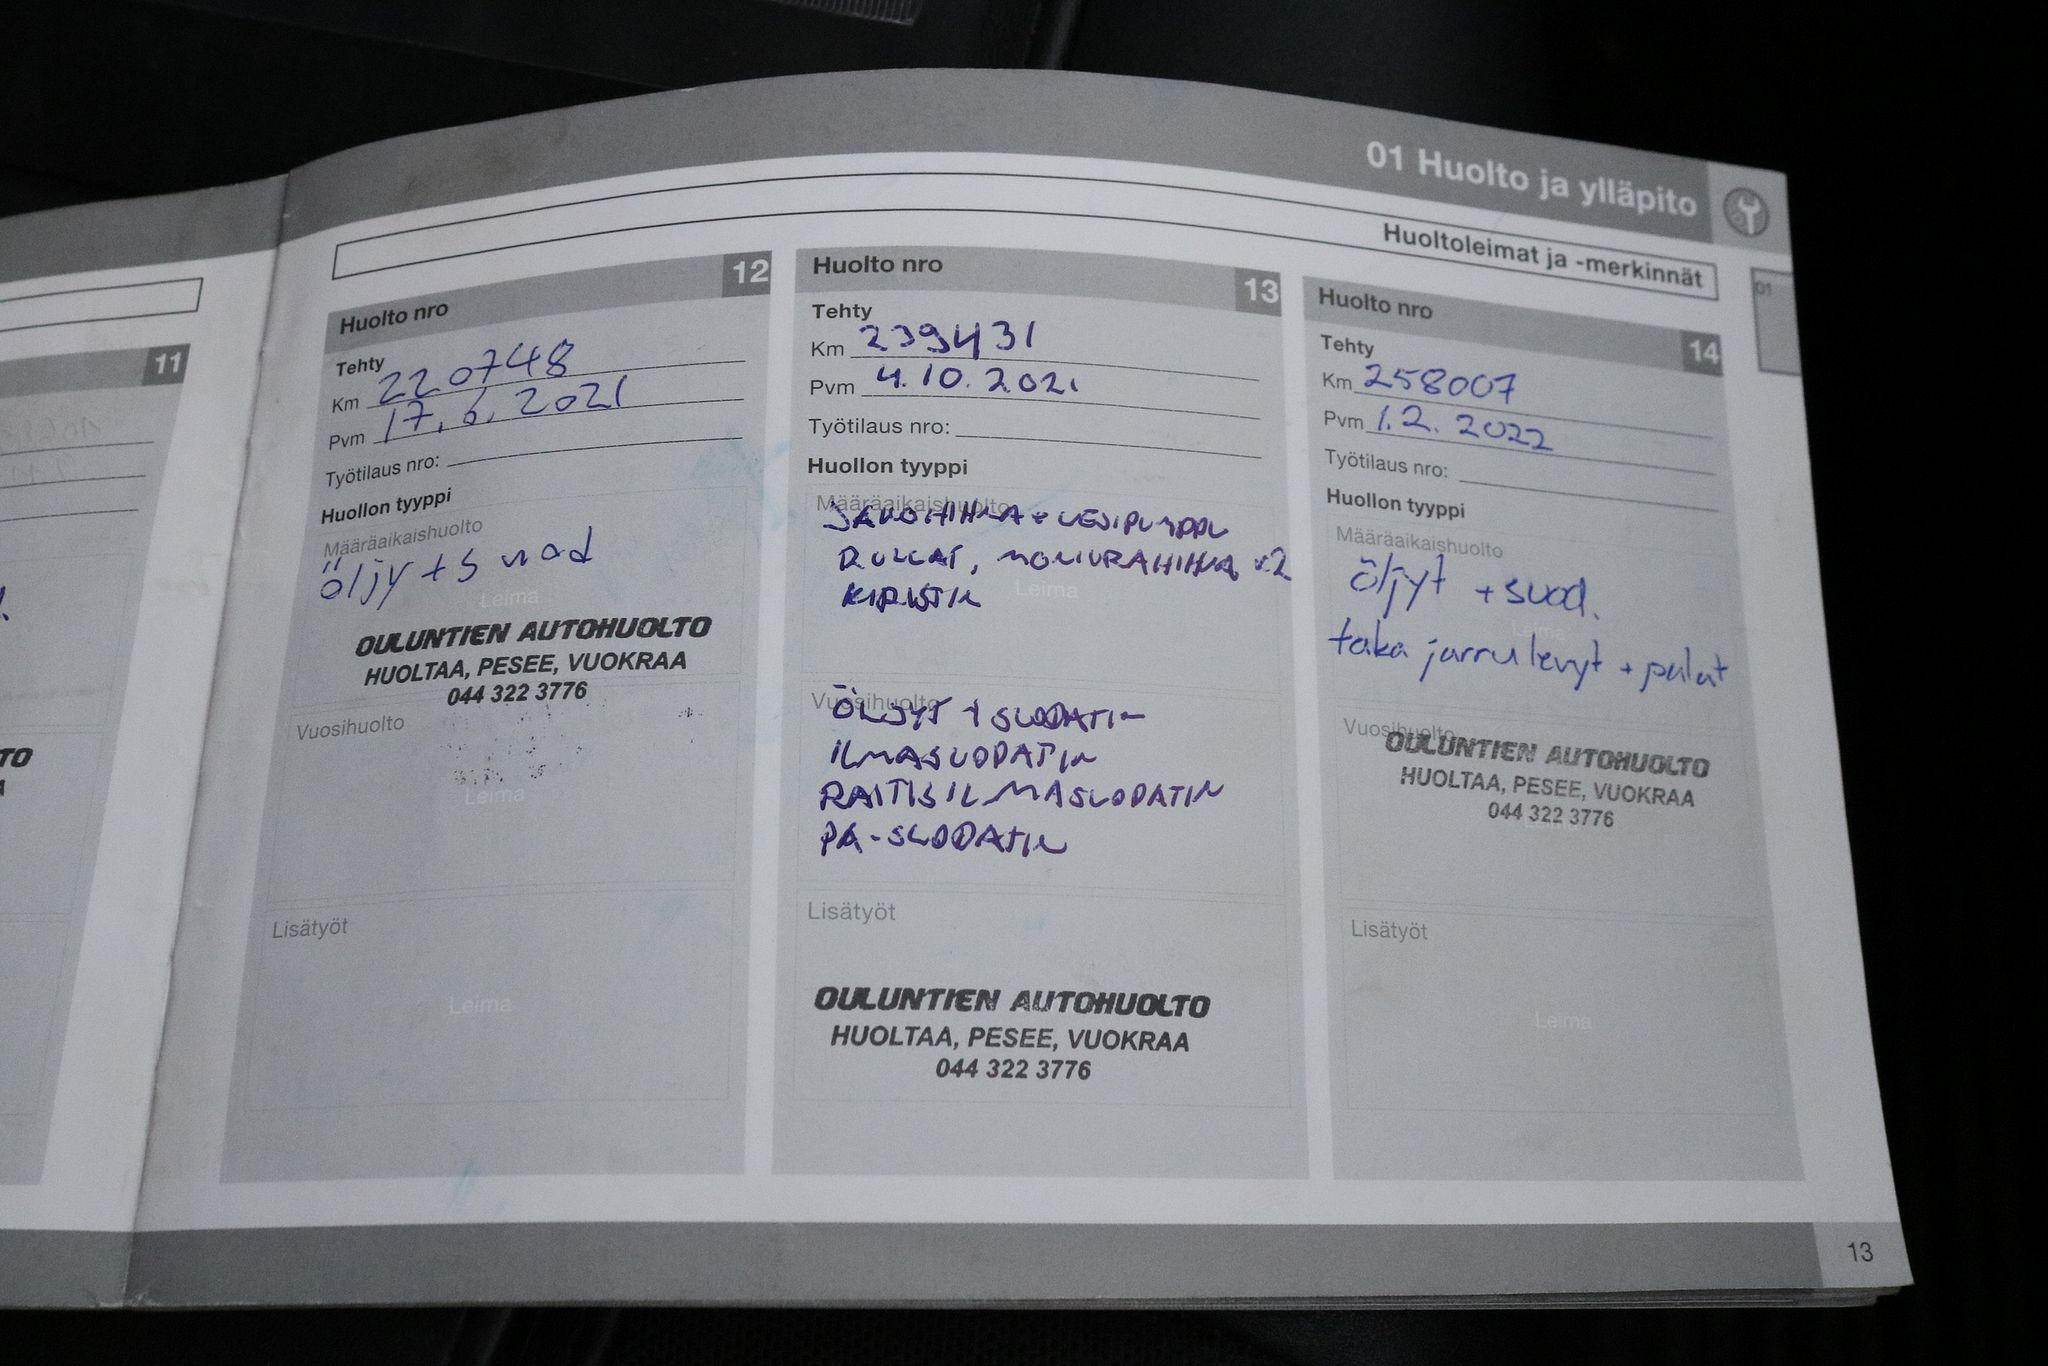 01 Huolto ja ylläpito
Huoltoleimat ja -merkinnät
01
11
TO
Huolto nro 12
Tehty
Km 220748
Pvm 17.6.2021
Työtilaus nro:
Huollon tyyppi
Määräaikaishuolto
öljy + suod
Leima
OULUNTIEN AUTOHUOLTO
HUOLTAA, PESEE, VUOKRAA
044 322 3776
Vuosihuolto
Leima
Lisätyöt
Leima
Huolto nro 13
Tehty
Km 239431
Pvm 4.10.2021
Työtilaus nro:
Huollon tyyppi
Määräaikaishuolto
JAKOHIHNA + VESIPUMPPU
RULLAT, MONIURAHIHNA x2
KIRISTIN
Leima
Vuosihuolto
ÖLJYT + SUODATIN
ILMASUODATIN
RAITISILMASUODATIN
PA-SUODATIN
Lisätyöt
OULUNTIEN AUTOHUOLTO
HUOLTAA, PESEE, VUOKRAA
044 322 3776
Huolto nro 14
Tehty
Km 258007
Pvm 1.2.2022
Työtilaus nro:
Huollon tyyppi
Määräaikaishuolto
öljyt + suod.
Leima
taka jarrulevyt + palat
Vuosihuolto
OULUNTIEN AUTOHUOLTO
HUOLTAA, PESEE, VUOKRAA
044 322 3776
Leima
Lisätyöt
Leima
13